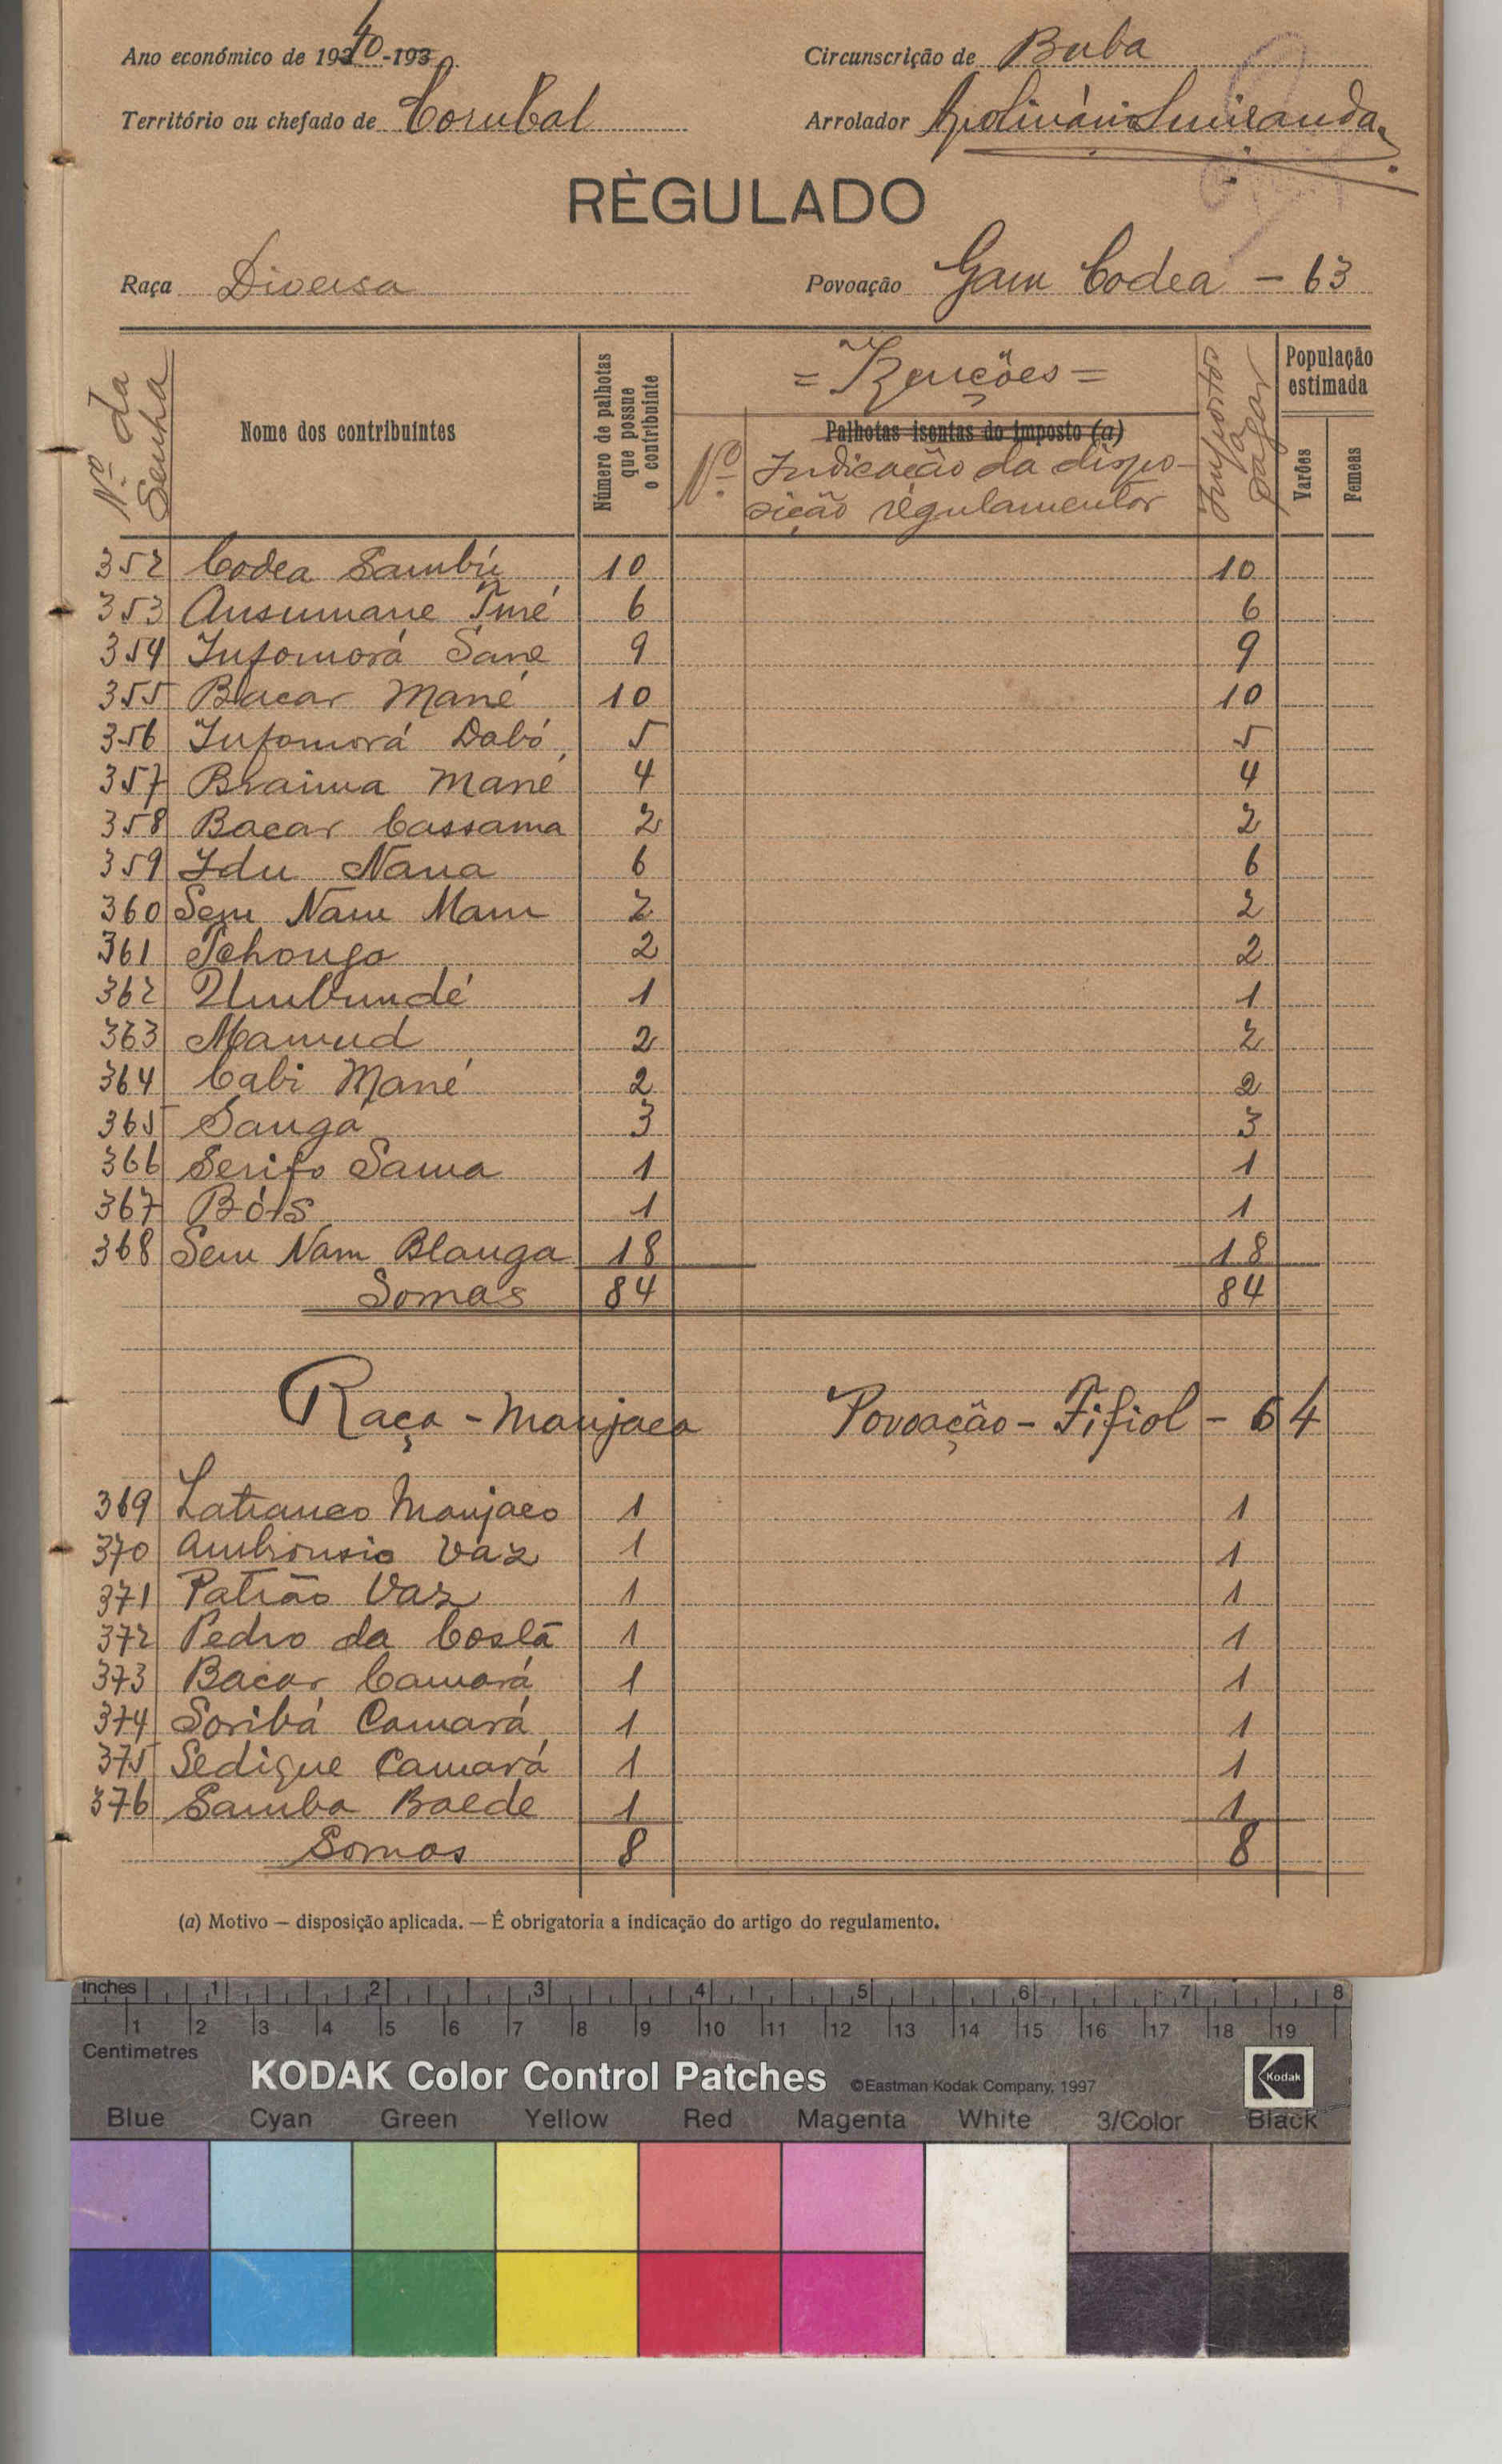 Ano económico de 1940-193
Circunscrição de Buba
Território ou chefado de Corubal
Arrolador
RÈGULADO
Raça Diversa
Povoação Gam Codea - 63
Nº da Senha
Nome dos contribuintes
Número de palhotas que possue o contribuinte
= Izenções =
Palhotas isentas do imposto (a)
Nº Indicação da dispo-
sição regulamentar
Impostos a pagar
População estimada
Varões
Femeas
352 Codea Sambú 10 10
353 Ansumane Turé 6 6
354 Infomorá Sane 9 9
355 Bacar Mané 10 10
356 Infomorá Dabó 5 5
357 Braima Mané 4 4
358 Bacar Cassama 2 2
359 Idu Nana 6 6
360 Sem Nam Mam 2 2
361 Tchongo 2 2
362 Umbundé 1 1
363 Mamud 2 2
364 Cabi Mané 2 2
365 Sanga 3 3
366 Serifo Sama 1 1
367 1 1
368 Sem Nam Blanga 18 18
Somas 84 84
Raça - Manjaca Povoação - Fifiol - 64
369 Latranco Manjaco 1 1
370 Ambronsio Vaz 1 1
371 Patrão Vaz 1 1
372 Pedro da Costa 1 1
373 Bacar Camará 1 1
374 Soribá Camará 1 1
375 Sedique Camará 1 1
376 Samba Baldé 1 1
Somas 8 8
(a) Motivo — disposição aplicada. — É obrigatoria a indicação do artigo do regulamento.
Inches 1 2 3 4 5 6 7 8
1 2 3 4 5 6 7 8 9 10 11 12 13 14 15 16 17 18 19
Centimetres
KODAK Color Control Patches ©Eastman Kodak Company, 1997 Kodak
Blue Cyan Green Yellow Red Magenta White 3/Color Black